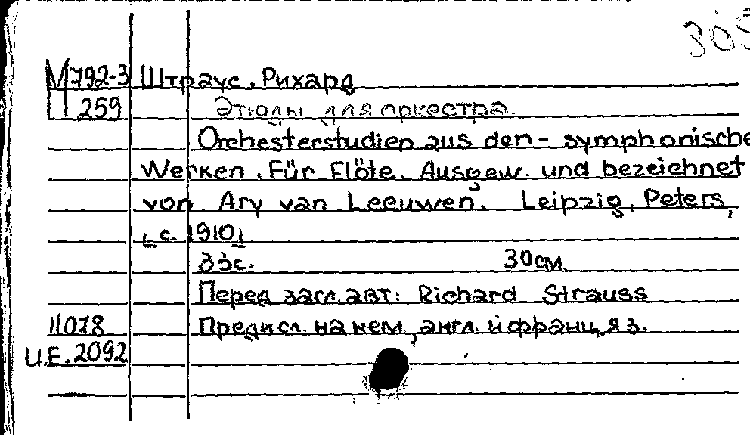 305
М792-3 Штраус, Рихард
П 259 Этюды для оркестра
Orchesterstudien aus den - symphonische
Werken. Für Flöte. Ausgew. und bezeichnet
von Ary van Leeuwen. Leipzig, Peters,
[c. 1910]
33c. 30см.
Перед загл. авт: Richard Strauss
11078 Предисл. на нем., англ. и франц. яз.
И.Е. 2092